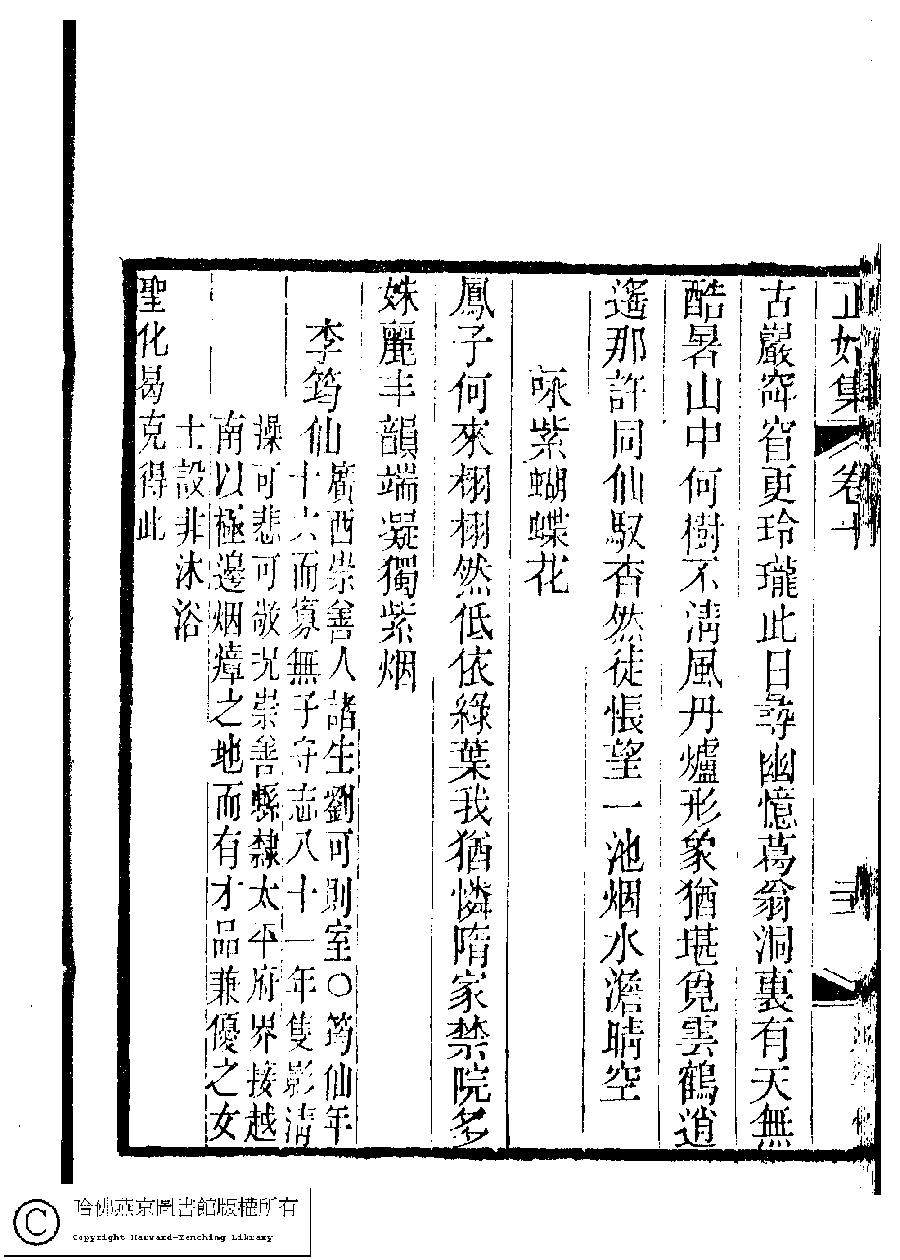 正始集 卷十
古巖窄窅更玲瓏此日尋幽憶葛翁洞裏有天無
酷暑山中何樹不淸風丹爐形象猶堪覓雲鶴逍
遙那許同仙馭杳然徒悵望一池烟水澹晴空
咏紫蝴蝶花
鳳子何來栩栩然低依綠葉我猶憐隋家禁院多
姝麗丰韻端凝獨紫烟
李筠仙
廣西崇善人諸生劉可則室○筠仙年
十六而寡無子守志八十一年隻影淸
操可悲可敬况崇善縣隸太平府界接越
南以極邊烟瘴之地而有才品兼優之女
士設非沐浴
聖化曷克得此
哈佛燕京圖書館版權所有
Copyright Harvard-Yenching Library